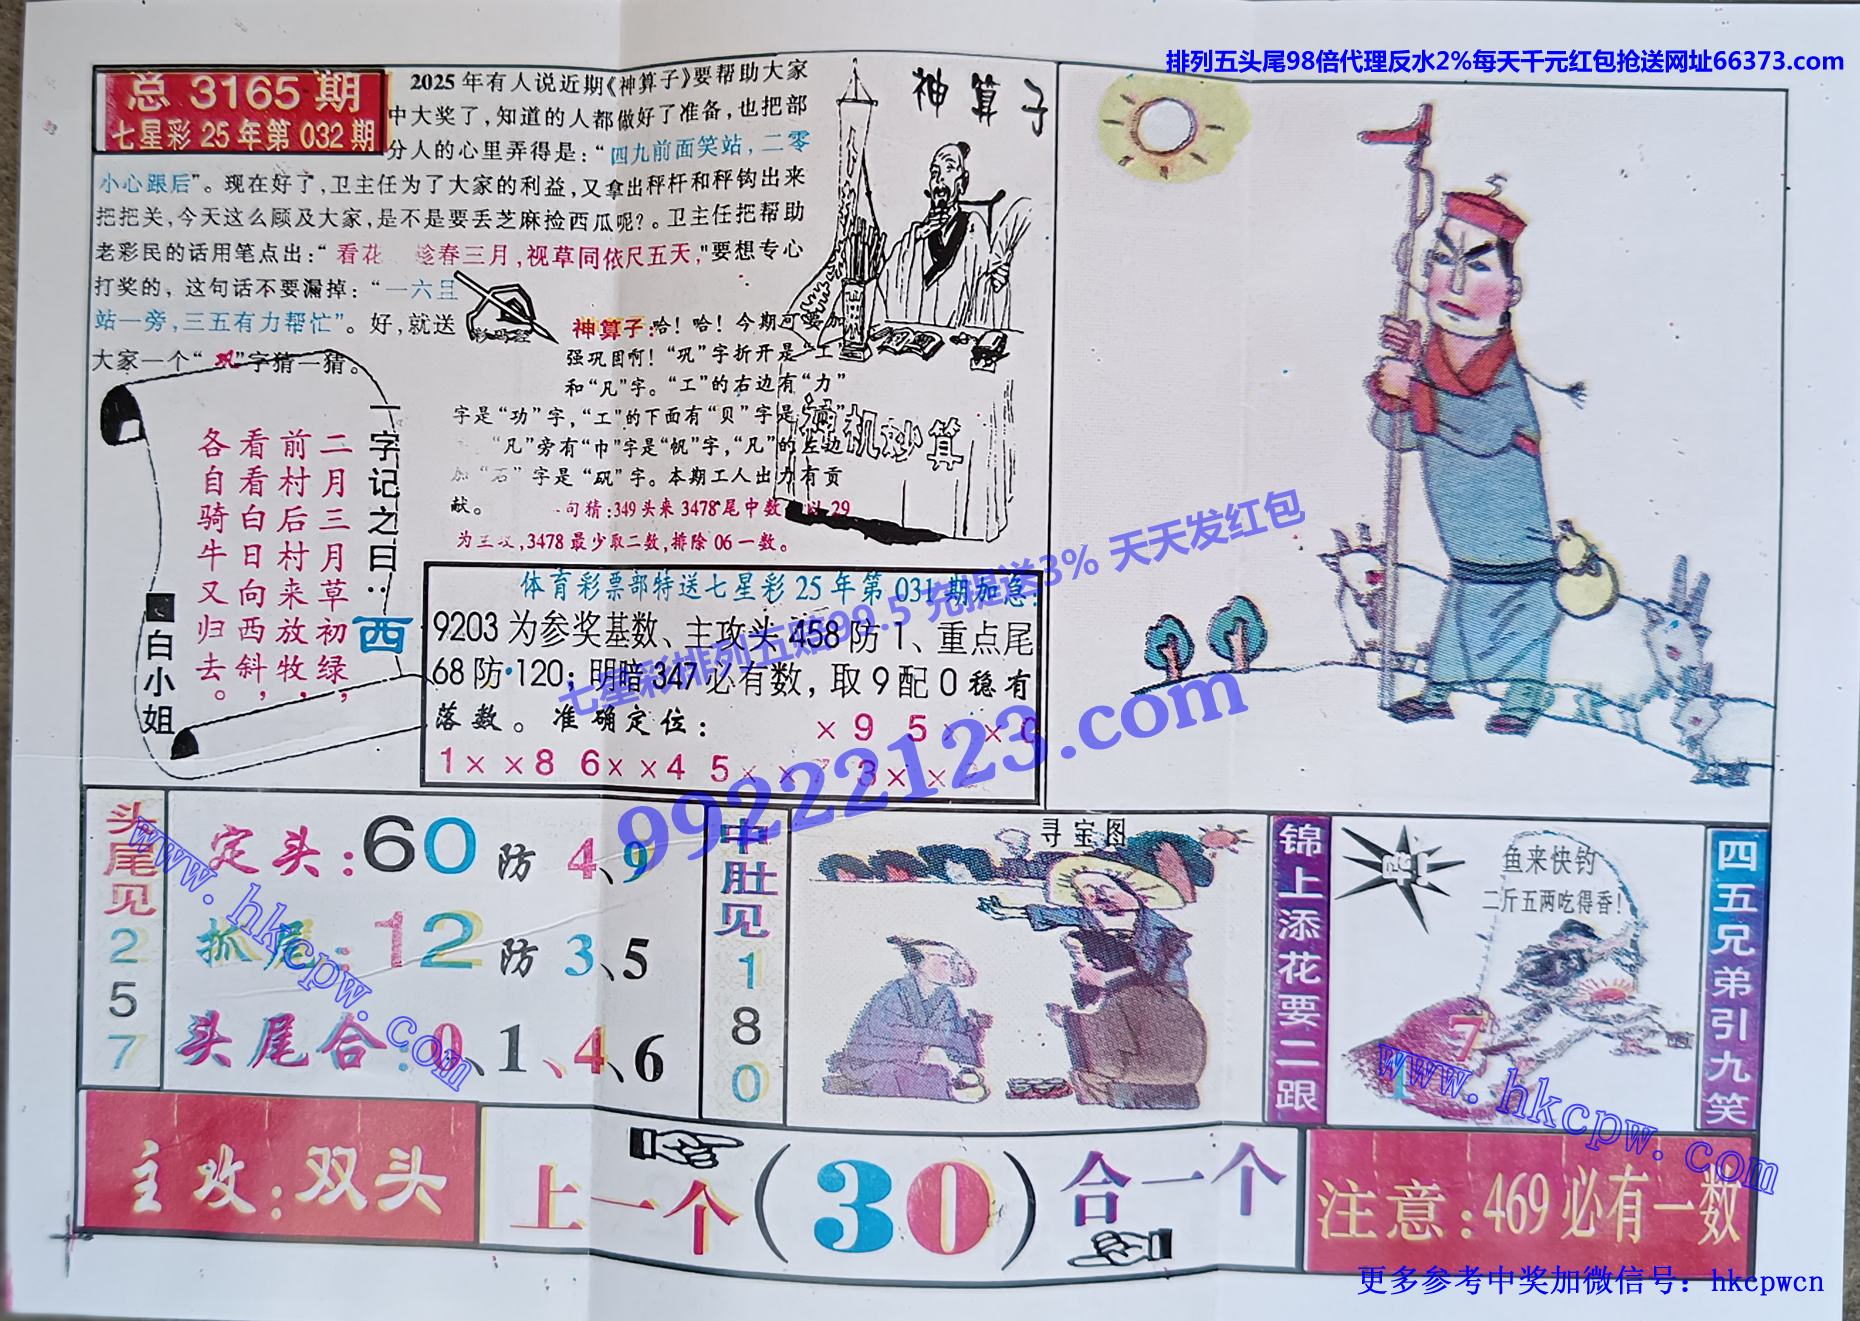 排列五头尾98倍代理反水2%每天千元红包抢送网址66373.com
总 3165 期
七星彩 25 年第 032 期
2025 年有人说近期《神算子》要帮助大家
中大奖了,知道的人都做好了准备,也把部
分人的心里弄得是:“四九前面笑站,二零
小心跟后”。现在好了,卫主任为了大家的利益,又拿出秤杆和秤钩出来
把把关,今天这么顾及大家,是不是要丢芝麻捡西瓜呢?。卫主任把帮助
老彩民的话用笔点出:“看花 春三月,视草同依尺五天,"要想专心
打奖的,这句话不要漏掉:“一六且
站一旁,三五有力帮忙”。好,就送
大家一个“巩”字猜一猜。
神算子:哈!哈!今期可要加
强巩固啊!“巩”字折开是“工”
和“凡”字。“工”的右边有“力”
字是“功”字,“工”的下面有“贝”字是
“凡”旁有“巾”字是“帆”字,“凡”的左边
加“石”字是“矾”字。本期工人出力有贡
献。
句猜:349头来 3478 尾中数 29
为主攻,3478 最少取二数,排除 06 一数。
神算子
神机妙算
一字记之曰:西
二月三月草初绿,
前村后村来放牧,
看看白日向西斜,
各自骑牛又归去。
白小姐
体育彩票部特送七星彩 25 年第 031 期加急:
9203 为参奖基数、主攻头 458 防 1、重点尾
68 防·120;明暗 347 必有数,取 9 配 0 稳有
落数。准确定位: ×9 5× ×0
1× ×8 6× ×4 5× ×7 3× ×
七星彩排列五赔99.5 充提送3% 天天发红包
99222123.com
头尾见257
定头:60 防 4、9
抓尾:12 防 3、5
头尾合:0、1、4、6
中肚见180
寻宝图
锦上添花要二跟
鱼来快钓
二斤五两吃得香!
7
1
四五兄弟引九笑
www.hkcpw.com
www.hkcpw.com
主攻:双头
上一个(30)合一个
注意:469 必有一数
更多参考中奖加微信号:hkcpwcn